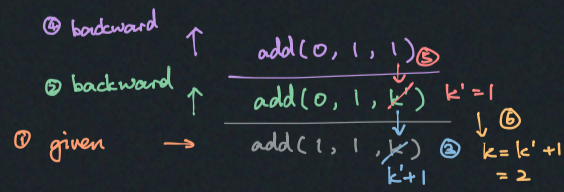 ④ backward ↑ add(0, 1, 1) ⑤
② backward ↑ add(0, 1, k') k'=1
① given → add(1, 1, k) ③ ↓ ⑥
k'+1 k = k'+1
= 2